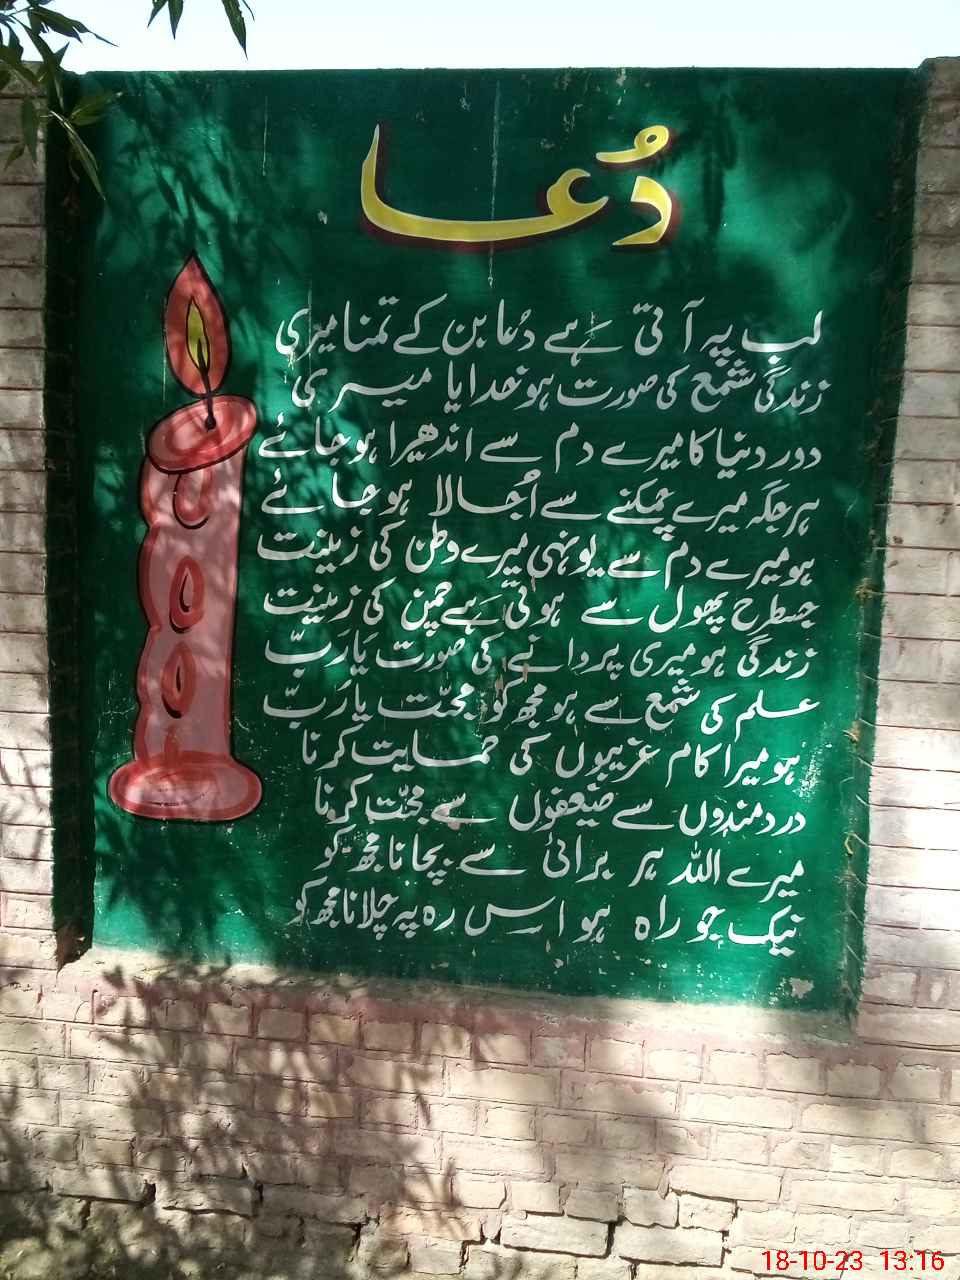 دُعا
لب پہ آتی ہے دُعا بن کے تمنا میری
زندگی شمع کی صورت ہو خدایا میری
دور دنیا کا میرے دم سے اندھیرا ہو جائے
ہر جگہ میرے چمکنے سے اُجالا ہو جائے
ہو میرے دم سے یونہی میرے وطن کی زینت
جسطرح پھول سے ہوتی ہے چمن کی زینت
زندگی ہو میری پروانے کی صورت یَارَبّ
علم کی شمع سے ہو مجھ کو محبّت یارَبّ
ہو میرا کام غریبوں کی حمایت کرنا
دردمندوں سے ضیعفوں سے محبّت کرنا
میرے اللہ ہر برائی سے بچانا مجھ کو
نیک جو راہ ہو اس رہ پہ چلانا مجھ کو
18-10-23 13:16